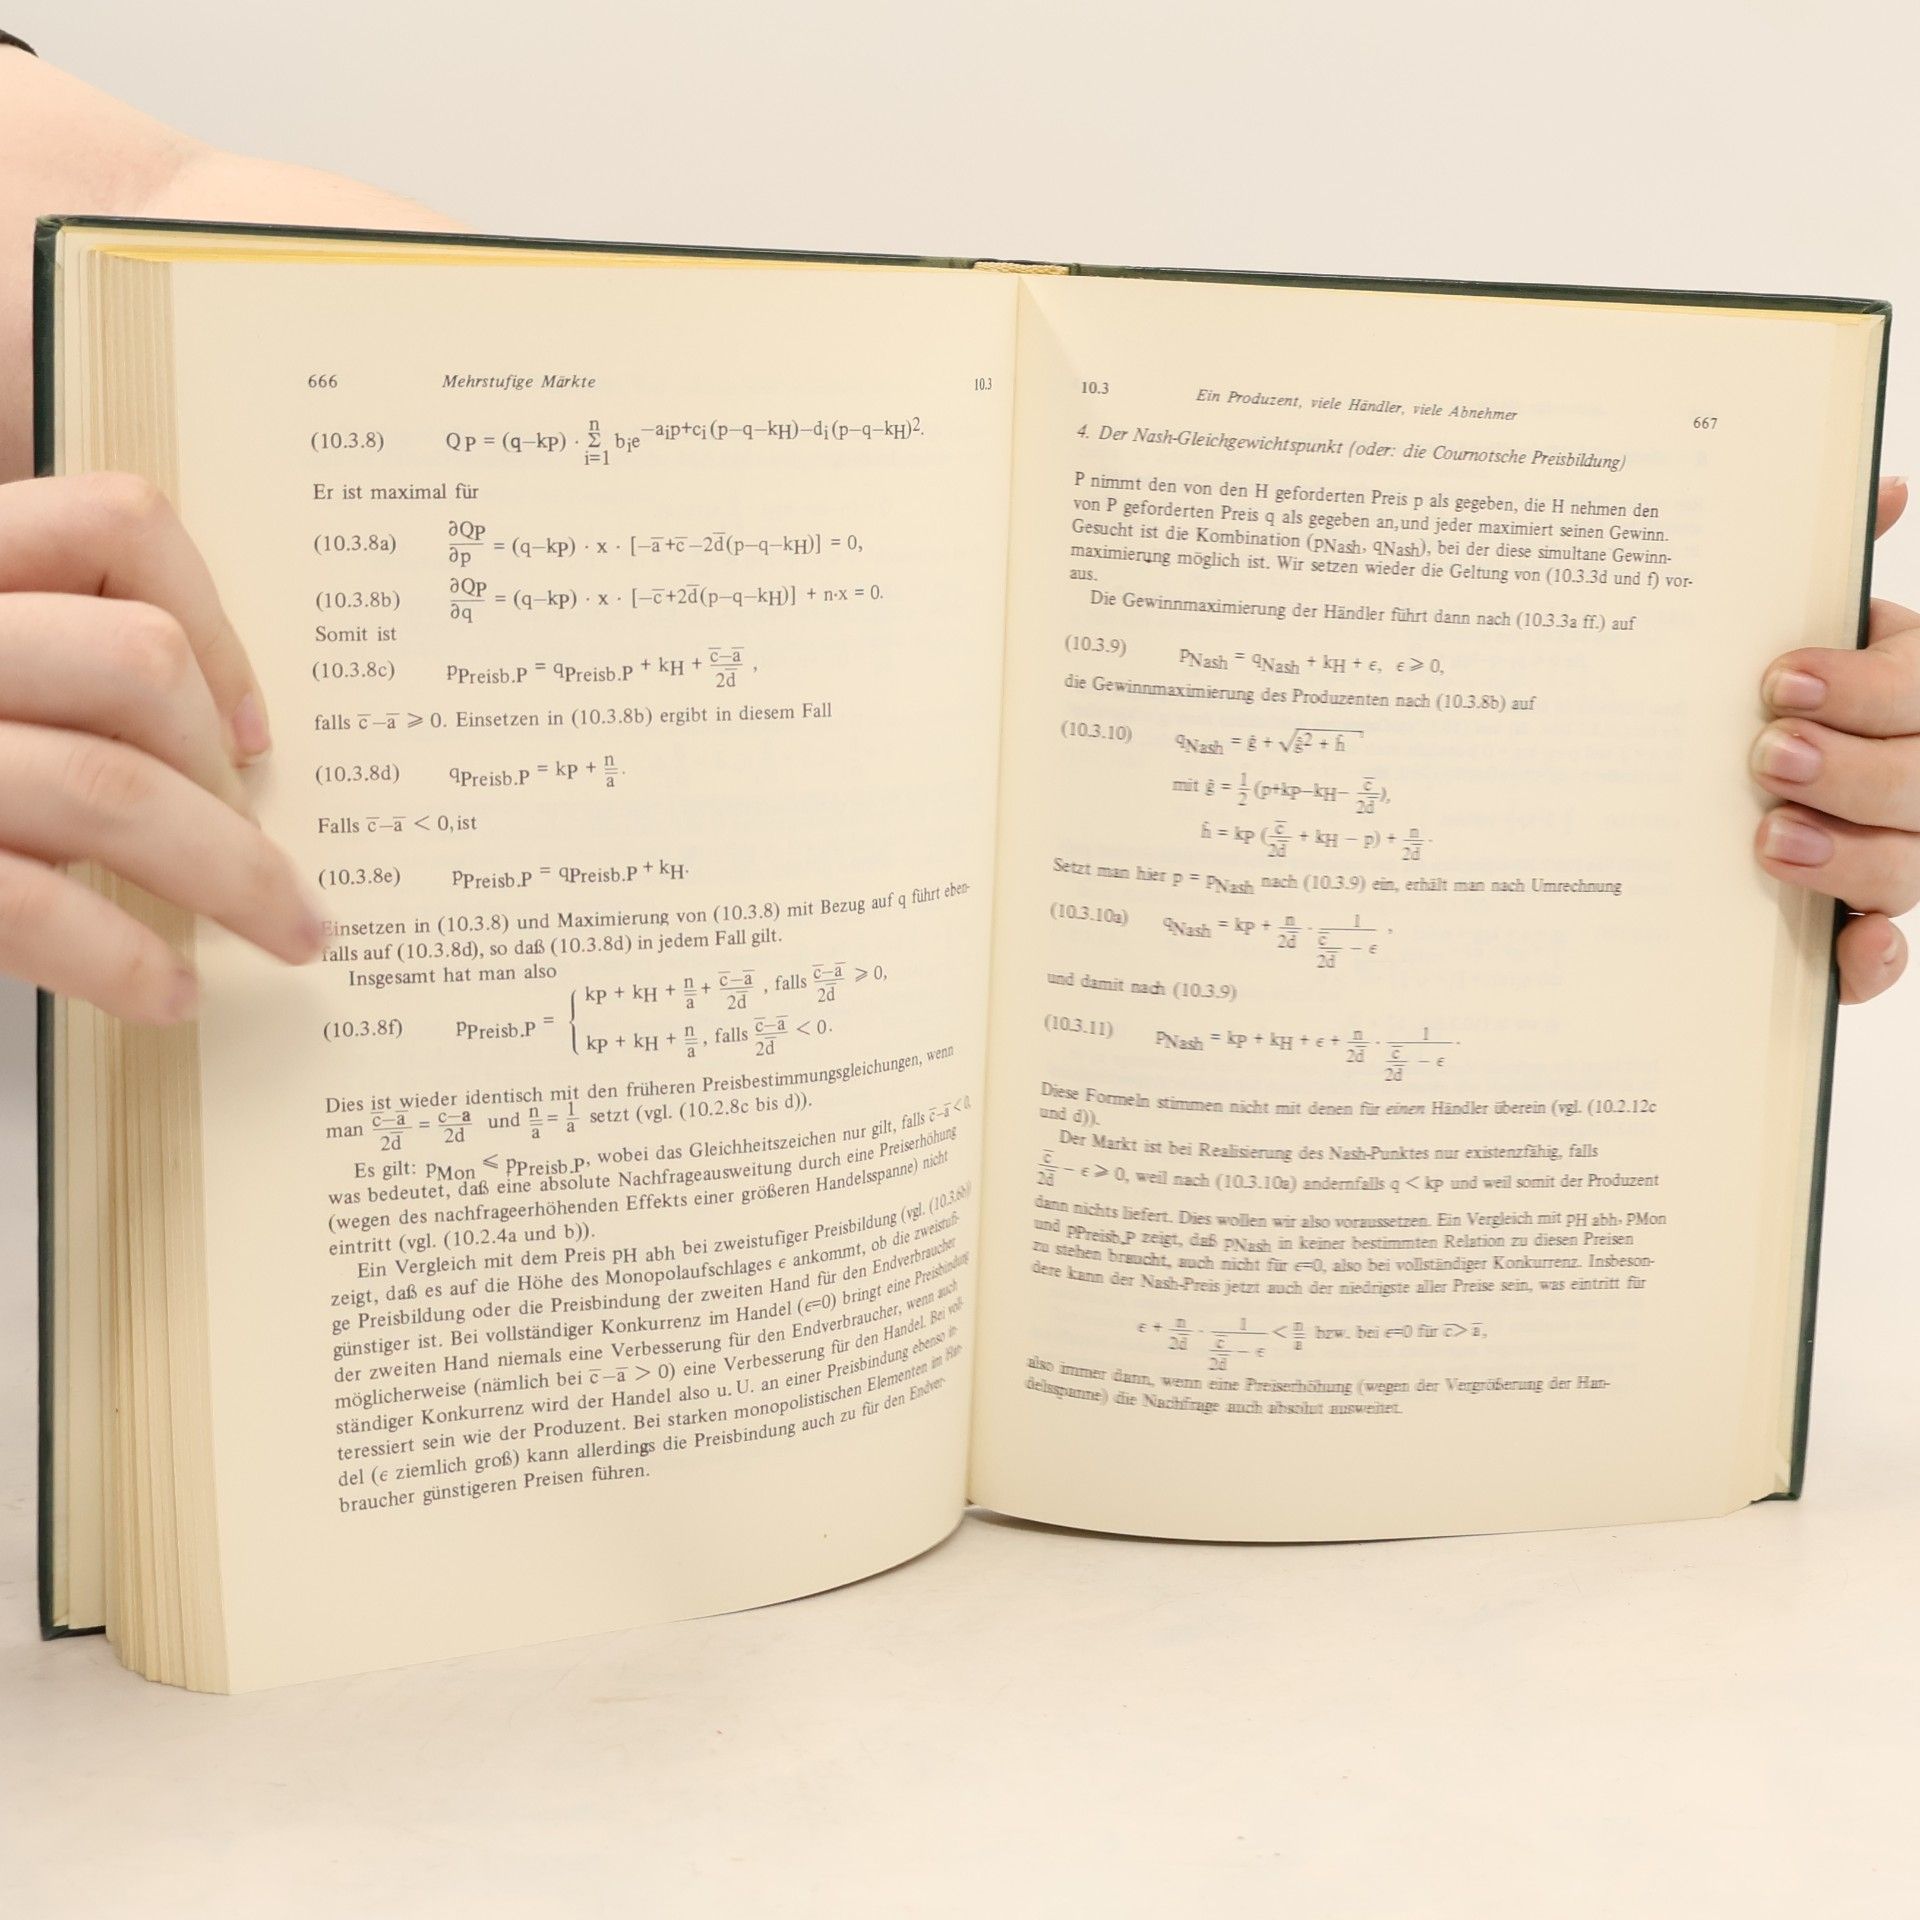 666 Mehrstufige Märkte 10.3
(10.3.8) QP = (q–kP) · Σ_{i=1}^{n} b_i e^{–a_i p+c_i (p–q–kH)–d_i (p–q–kH)²}.
Er ist maximal für
(10.3.8a) ∂QP/∂p = (q–kP) · x · [–a̿+c̅–2d̅(p–q–kH)] = 0,
(10.3.8b) ∂QP/∂q = (q–kP) · x · [–c̅+2d̅(p–q–kH)] + n·x = 0.
Somit ist
(10.3.8c) pPreisb.P = qPreisb.P + kH + (c̅–a̿)/2d̅ ,
falls c̅–a̿ ⩾ 0. Einsetzen in (10.3.8b) ergibt in diesem Fall
(10.3.8d) qPreisb.P = kP + n/a̿.
Falls c̅–a̿ < 0, ist
(10.3.8e) pPreisb.P = qPreisb.P + kH.
Einsetzen in (10.3.8) und Maximierung von (10.3.8) mit Bezug auf q führt eben-
falls auf (10.3.8d), so daß (10.3.8d) in jedem Fall gilt.
Insgesamt hat man also
(10.3.8f) pPreisb.P = { kP + kH + n/a̿ + (c̅–a̿)/2d̅ , falls (c̅–a̿)/2d̅ ⩾ 0,
kP + kH + n/a̿ , falls (c̅–a̿)/2d̅ < 0.
Dies ist wieder identisch mit den früheren Preisbestimmungsgleichungen, wenn
man (c̅–a̿)/2d̅ = (c–a)/2d und n/a̿ = 1/a setzt (vgl. (10.2.8c bis d)).
Es gilt: pMon ⩽ pPreisb.P, wobei das Gleichheitszeichen nur gilt, falls c̅–a̿ < 0,
was bedeutet, daß eine absolute Nachfrageausweitung durch eine Preiserhöhung
(wegen des nachfrageerhöhenden Effekts einer größeren Handelsspanne) nicht
eintritt (vgl. (10.2.4a und b)).
Ein Vergleich mit dem Preis pH abh bei zweistufiger Preisbildung (vgl. (10.3.6b))
zeigt, daß es auf die Höhe des Monopolaufschlages ϵ ankommt, ob die zweistufi-
ge Preisbildung oder die Preisbindung der zweiten Hand für den Endverbraucher
günstiger ist. Bei vollständiger Konkurrenz im Handel (ϵ=0) bringt eine Preisbindung
der zweiten Hand niemals eine Verbesserung für den Endverbraucher, wenn auch
möglicherweise (nämlich bei c̅–a̿ > 0) eine Verbesserung für den Handel. Bei voll-
ständiger Konkurrenz wird der Handel also u. U. an einer Preisbindung ebenso in-
teressiert sein wie der Produzent. Bei starken monopolistischen Elementen im Han-
del (ϵ ziemlich groß) kann allerdings die Preisbindung auch zu für den Endver-
braucher günstigeren Preisen führen.
10.3 Ein Produzent, viele Händler, viele Abnehmer 667
4. Der Nash-Gleichgewichtspunkt (oder: die Cournotsche Preisbildung)
P nimmt den von den H geforderten Preis p als gegeben, die H nehmen den
von P geforderten Preis q als gegeben an, und jeder maximiert seinen Gewinn.
Gesucht ist die Kombination (pNash, qNash), bei der diese simultane Gewinn-
maximierung möglich ist. Wir setzen wieder die Geltung von (10.3.3d und f) vor-
aus.
Die Gewinnmaximierung der Händler führt dann nach (10.3.3a ff.) auf
(10.3.9) pNash = qNash + kH + ϵ, ϵ ⩾ 0,
die Gewinnmaximierung des Produzenten nach (10.3.8b) auf
(10.3.10) qNash = ĝ + √(ĝ² + ĥ)
mit ĝ = 1/2 (p+kP–kH– c̅/2d̅),
ĥ = kP (c̅/2d̅ + kH – p) + n/2d̅.
Setzt man hier p = pNash nach (10.3.9) ein, erhält man nach Umrechnung
(10.3.10a) qNash = kP + n/2d̅ · 1/(c̅/2d̅ – ϵ) ,
und damit nach (10.3.9)
(10.3.11) pNash = kP + kH + ϵ + n/2d̅ · 1/(c̅/2d̅ – ϵ).
Diese Formeln stimmen nicht mit denen für einen Händler überein (vgl. (10.2.12c
und d)).
Der Markt ist bei Realisierung des Nash-Punktes nur existenzfähig, falls
c̅/2d̅ – ϵ ⩾ 0, weil nach (10.3.10a) andernfalls q < kP und weil somit der Produzent
dann nichts liefert. Dies wollen wir also voraussetzen. Ein Vergleich mit pH abh, pMon
und pPreisb.P zeigt, daß pNash in keiner bestimmten Relation zu diesen Preisen
zu stehen braucht, auch nicht für ϵ=0, also bei vollständiger Konkurrenz. Insbeson-
dere kann der Nash-Preis jetzt auch der niedrigste aller Preise sein, was eintritt für
ϵ + n/2d̅ · 1/(c̅/2d̅ – ϵ) < n/a̿ bzw. bei ϵ=0 für c̅ > a̿,
also immer dann, wenn eine Preiserhöhung (wegen der Vergrößerung der Han-
delsspanne) die Nachfrage auch absolut ausweitet.